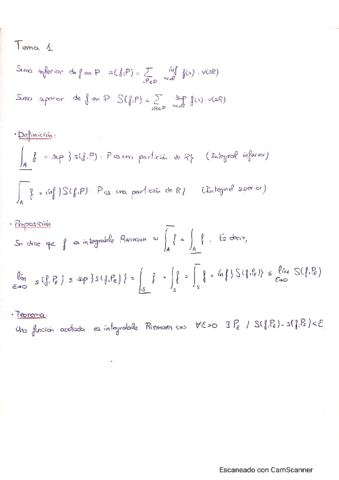 Tema 1
Suma inferior de f en P s(f,P) = ∑ inf f(x) · v(R)
Suma superior de f en P S(f,P) = ∑ sup f(x) · v(R)
· Definición:
∫_A f = sup { s(f,P) : P es una partición de R } (Integral inferior)
∫_A f = inf { S(f,P) : P es una partición de R } (Integral superior)
· Proposición
Se dice que f es integrable Riemann si ∫_A f = ∫_A f . Es decir,
lím ε→0 s(f,Pε) ≤ sup { s(f,Pε) } = ∫_S f = ∫_S f = ∫_S f = inf { S(f,Pε) } ≤ lím ε→0 S(f,Pε)
· Teorema
Una función acotada es integrable Riemann <=> ∀ε>0 ∃ Pε / S(f,Pε) - s(f,Pε) < ε
Escaneado con CamScanner